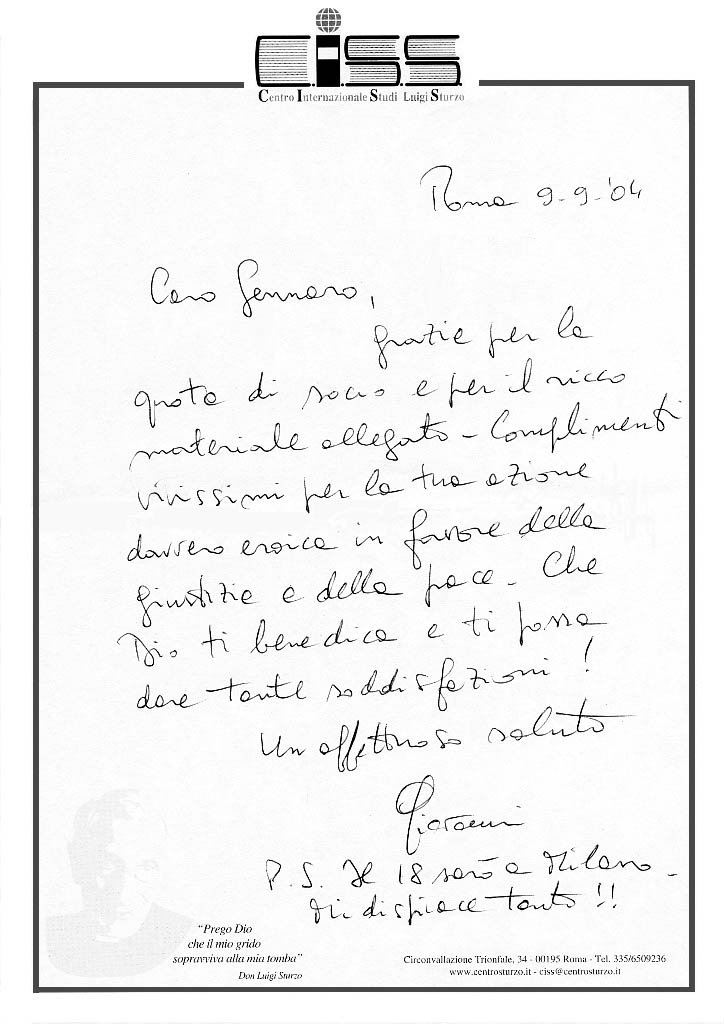 C.I.S.S.
Centro Internazionale Studi Luigi Sturzo
Roma 9-9-'04
Caro Gennaro,
grazie per la
quota di socio e per il ricco
materiale allegato - Complimenti
vivissimi per la tua azione
davvero eroica in favore della
giustizia e della pace - Che
Dio ti benedica e ti possa
dare tante soddisfazioni!
Un affettuoso saluto
Giovanni
P.S. Il 18 sarò a Milano -
Mi dispiace tanto!!
"Prego Dio
che il mio grido
sopravviva alla mia tomba"
Don Luigi Sturzo
Circonvallazione Trionfale, 34 - 00195 Roma - Tel. 335/6509236
www.centrosturzo.it - ciss@centrosturzo.it